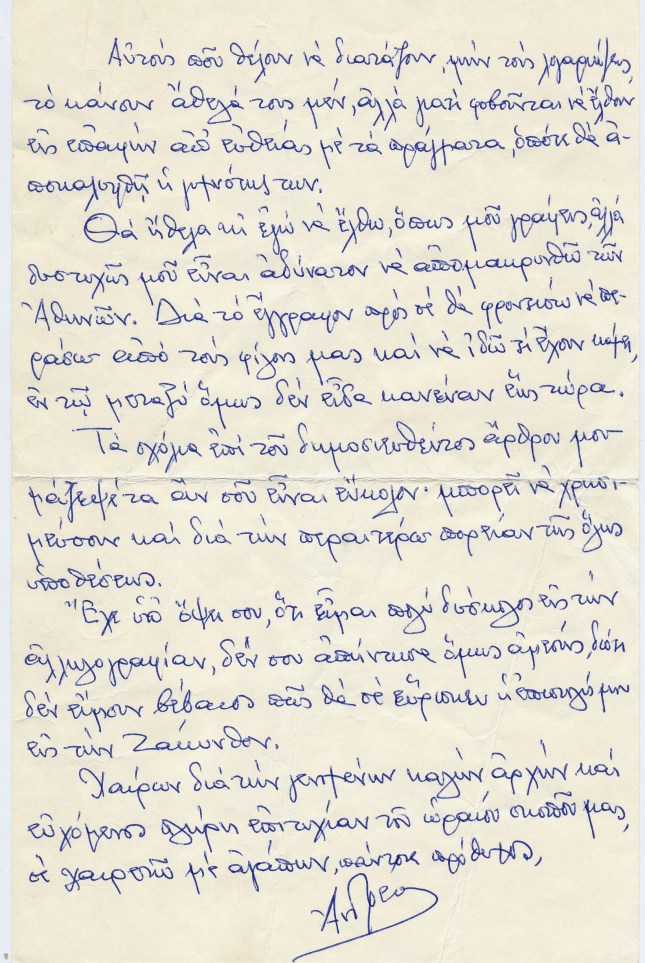 Αὐτοὺς ποὺ θέλουν νὰ διατάζουν, μὴν τοὺς λογαριάζεις,
τὸ κάνουν ἄθελά τους μέν, ἀλλὰ γιατὶ φοβοῦνται νὰ ἔλθουν
εἰς ἐπαφὴν ἀπ' εὐθείας μὲ τὰ πράγματα, ὁπότε θὰ ἀ-
ποκαλυφθῇ ἡ γυμνότης των.
Θὰ ἤθελα κι ἐγὼ νὰ ἔλθω, ὅπως μοῦ γράφεις, ἀλλὰ
δυστυχῶς μοῦ εἶναι ἀδύνατον νὰ ἀπομακρυνθῶ τῶν
Ἀθηνῶν. Διὰ τὸ ἔγγραφον πρὸς σὲ θὰ φροντίσω νὰ πε-
ράσω ἀπὸ τοὺς φίλους μας καὶ νὰ ἰδῶ τί ἔχουν κάμει,
ἐν τῷ μεταξὺ ὅμως δὲν εἶδα κανέναν ἕως τώρα.
Τὰ σχόλια ἐπὶ τοῦ δημοσιευθέντος ἄρθρου μου
μάζεψέ τα ἂν σοῦ εἶναι εὔκολον· μπορεῖ νὰ χρησι-
μεύσουν καὶ διὰ τὴν περαιτέρω πορείαν τῆς ὅλης
ὑποθέσεως.
Ἔχε ὑπ' ὄψει σου, ὅτι εἶμαι πολὺ δύσκολος εἰς τὴν
ἀλληλογραφίαν, δέν σου ἀπήντησα ὅμως ἀμέσως, διότι
δὲν ἤμουν βέβαιος πὼς θὰ σὲ εὕρισκεν ἡ ἐπιστολή μου
εἰς τὴν Ζάκυνθον.
Χαίρων διὰ τὴν γενομένην καλὴν ἀρχὴν καὶ
εὐχόμενος πλήρη ἐπιτυχίαν τοῦ ὡραίου σκοποῦ μας,
σὲ χαιρετῶ μὲ ἀγάπην, πάντοτε πρόθυμος,